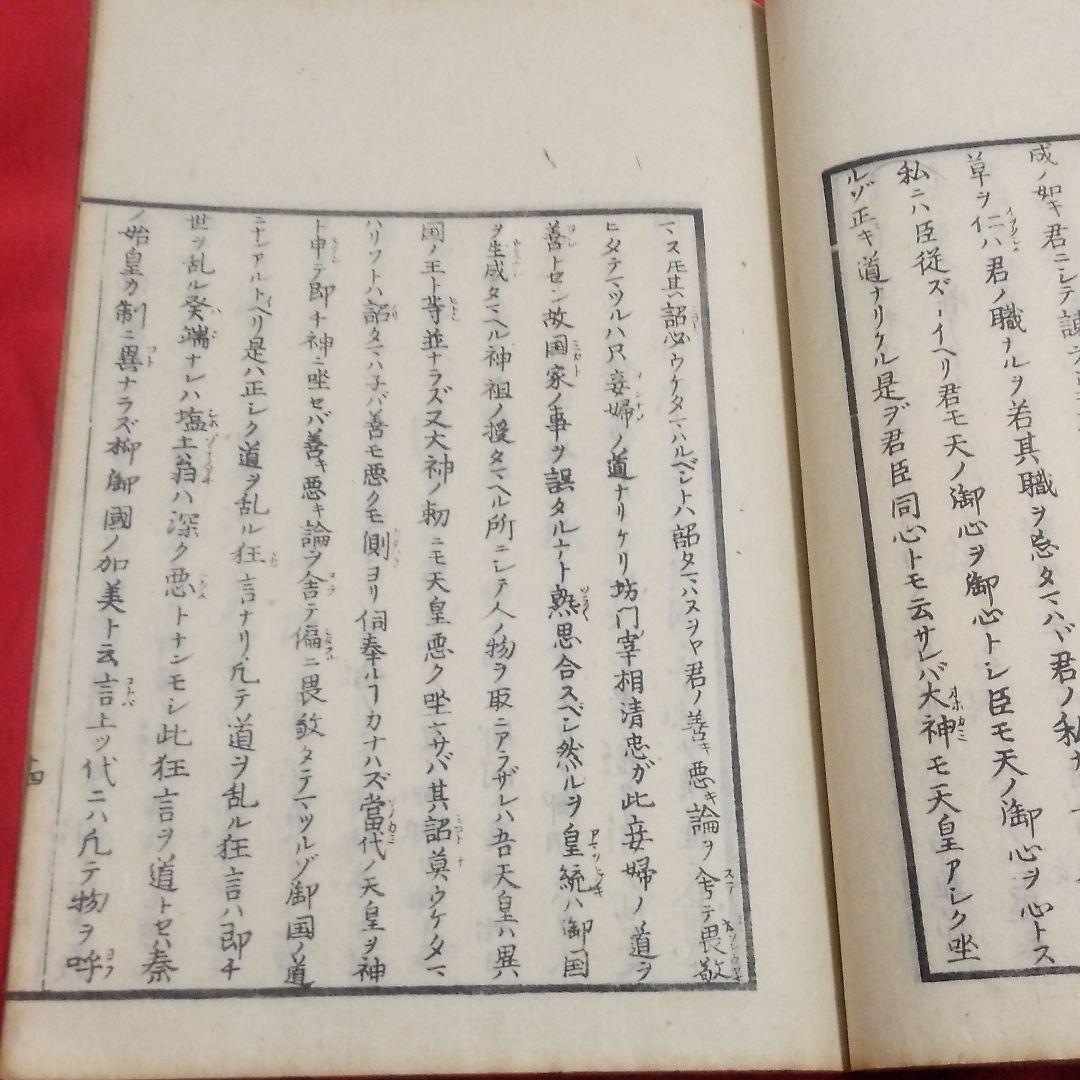 成ノ如キ君ニシテ
草ヲ仁ハ君ノ職ナルヲ若其職ヲ怠タマハヾ君ノ私
私ニハ臣従ズトイヘリ君モ天ノ御心ヲ御心トシ臣モ天ノ御心ヲ心トス
ルゾ正キ道ナリケル是ヲ君臣同心トモ云サレバ大神モ天皇アシク坐
マス𪜈其詔必ウケタマハルベシトハ詔タマハスヲヤ君ノ善キ悪キ論ヲ舎テ畏敬
ヒタテマツルハ只妾婦ノ道ナリケリ坊門宰相清忠ガ此妾婦ノ道ヲ
善トセシ故国家ノ事ヲ誤タルヿト熟思合スベシ然ルヲ皇統ハ御国
ヲ生成タマヘル神祖ノ授タマヘル所ニシテ人ノ物ヲ取ニアラザレハ吾天皇ハ異
国ノ王ト等並ナラズ又大神ノ勅ニモ天皇悪ク坐マサバ其詔莫ウケタマ
ハリソトハ詔タマハネバ善モ悪クモ側ヨリ伺奉ルヿカナハズ當代ノ天皇ヲ神
ト申テ即チ神ニ坐セバ善キ悪キ論ヲ舎テ偏ニ畏敬タテマツルゾ御国ノ道
ニナンアルトイヘリ是ハ正シク道ヲ乱ル狂言ナリ凡テ道ヲ乱ル狂言ハ即チ
世ヲ乱ル発端ナレハ塩土翁ハ深ク悪トナンモシ此狂言ヲ道トセハ秦
ノ始皇カ制ニ異ナラズ抑御國ノ加美ト云言上ツ代ニハ凡テ物ヲ呼
十四